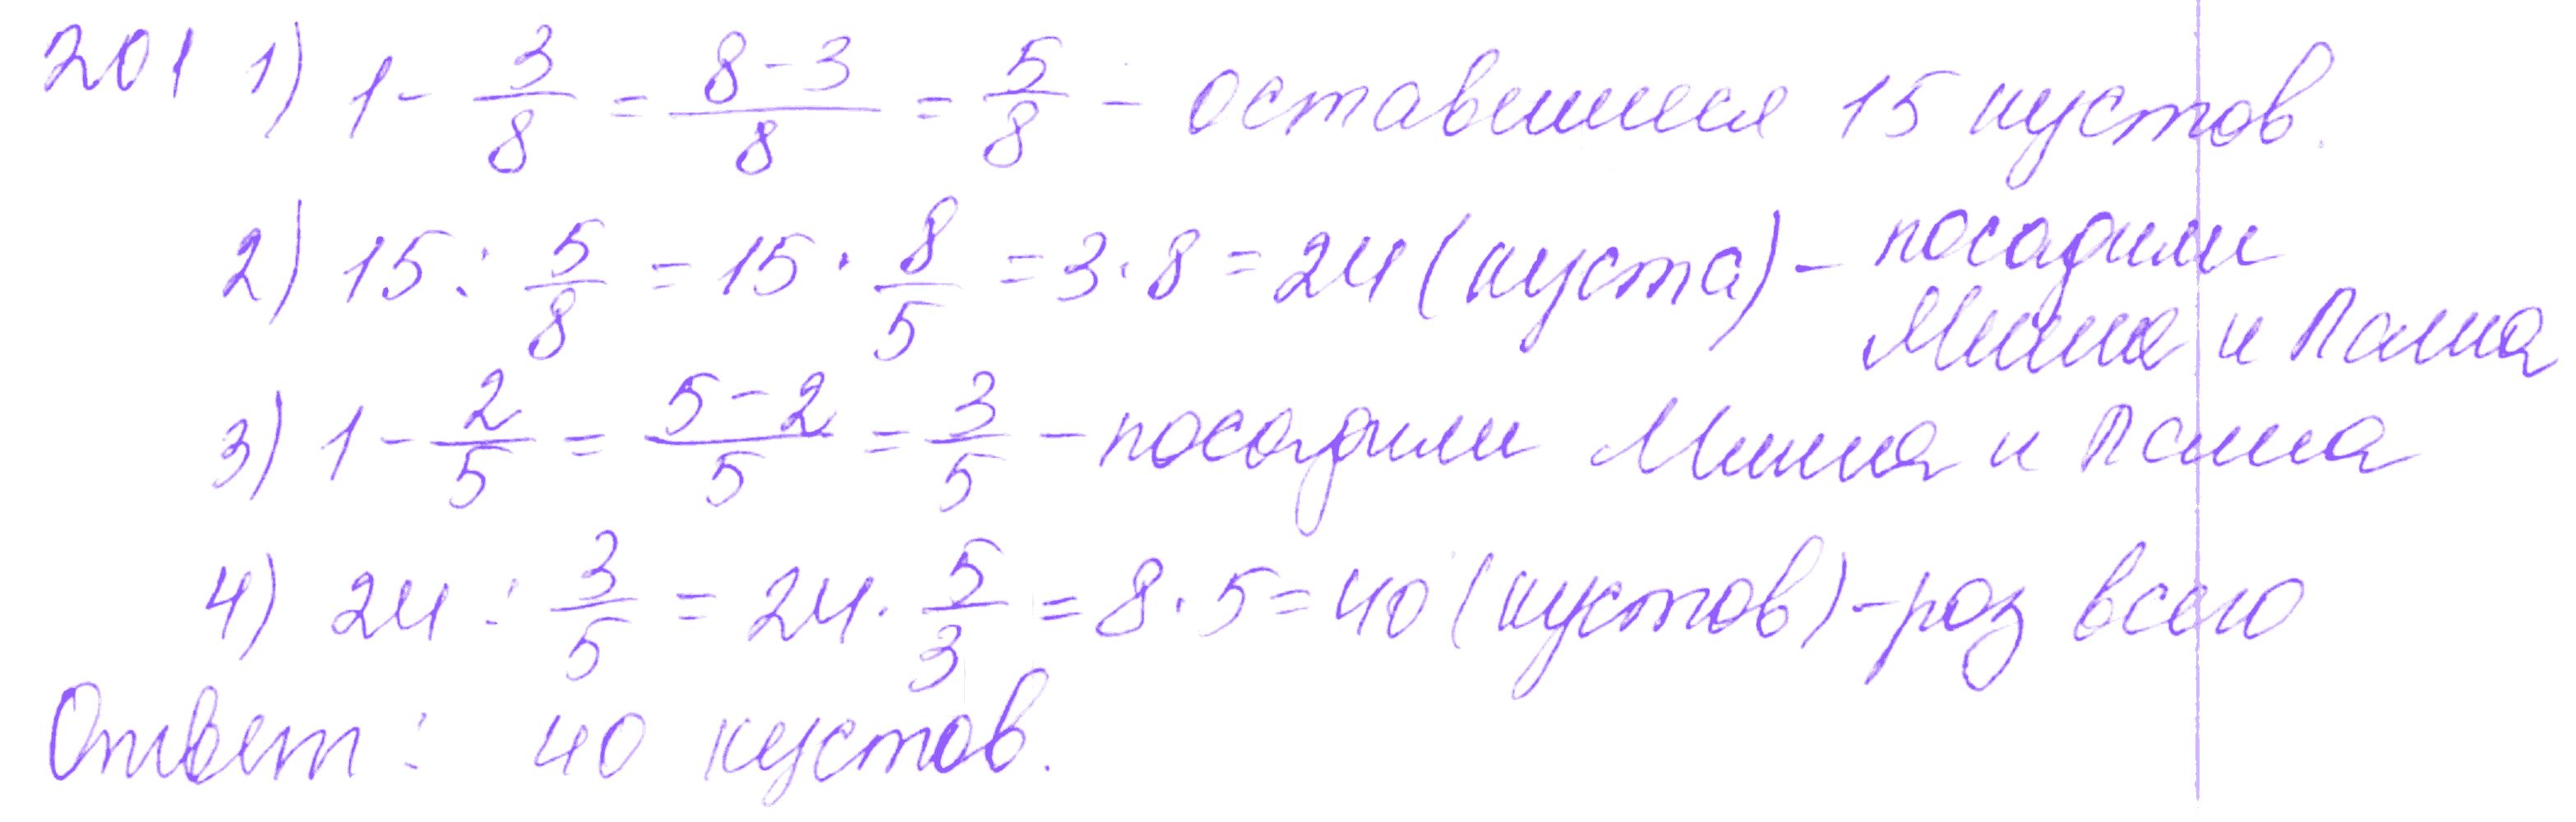 201 1) 1 - 3/8 = (8-3)/8 = 5/8 - оставшиеся 15 кустов.
2) 15 : 5/8 = 15 · 8/5 = 3 · 8 = 24 (куста) - посадили
Миша и Паша
3) 1 - 2/5 = (5-2)/5 = 3/5 - посадили Миша и Паша
4) 24 : 3/5 = 24 · 5/3 = 8 · 5 = 40 (кустов) - роз всего
Ответ: 40 кустов.